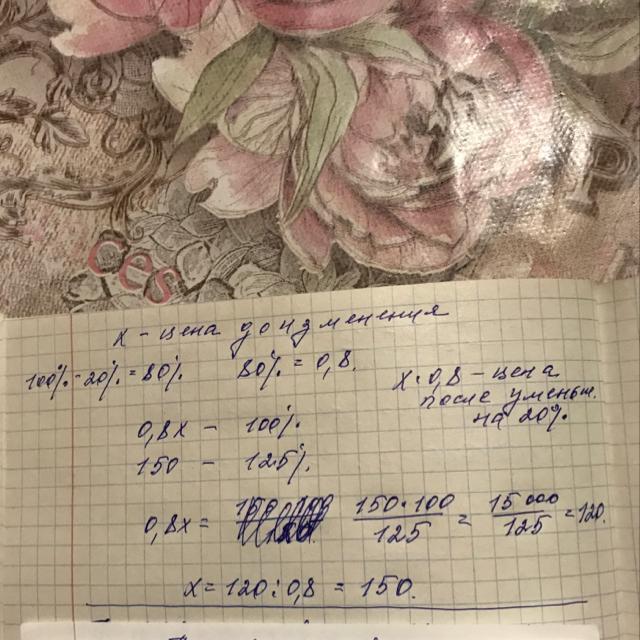 ces
x - цена до изменения
100% - 20% = 80% 80% = 0,8.
x · 0,8 - цена
после уменьш.
на 20%
0,8x - 100%
150 - 125%
0,8x = 150·100/125 = 15000/125 = 120.
x = 120 : 0,8 = 150.